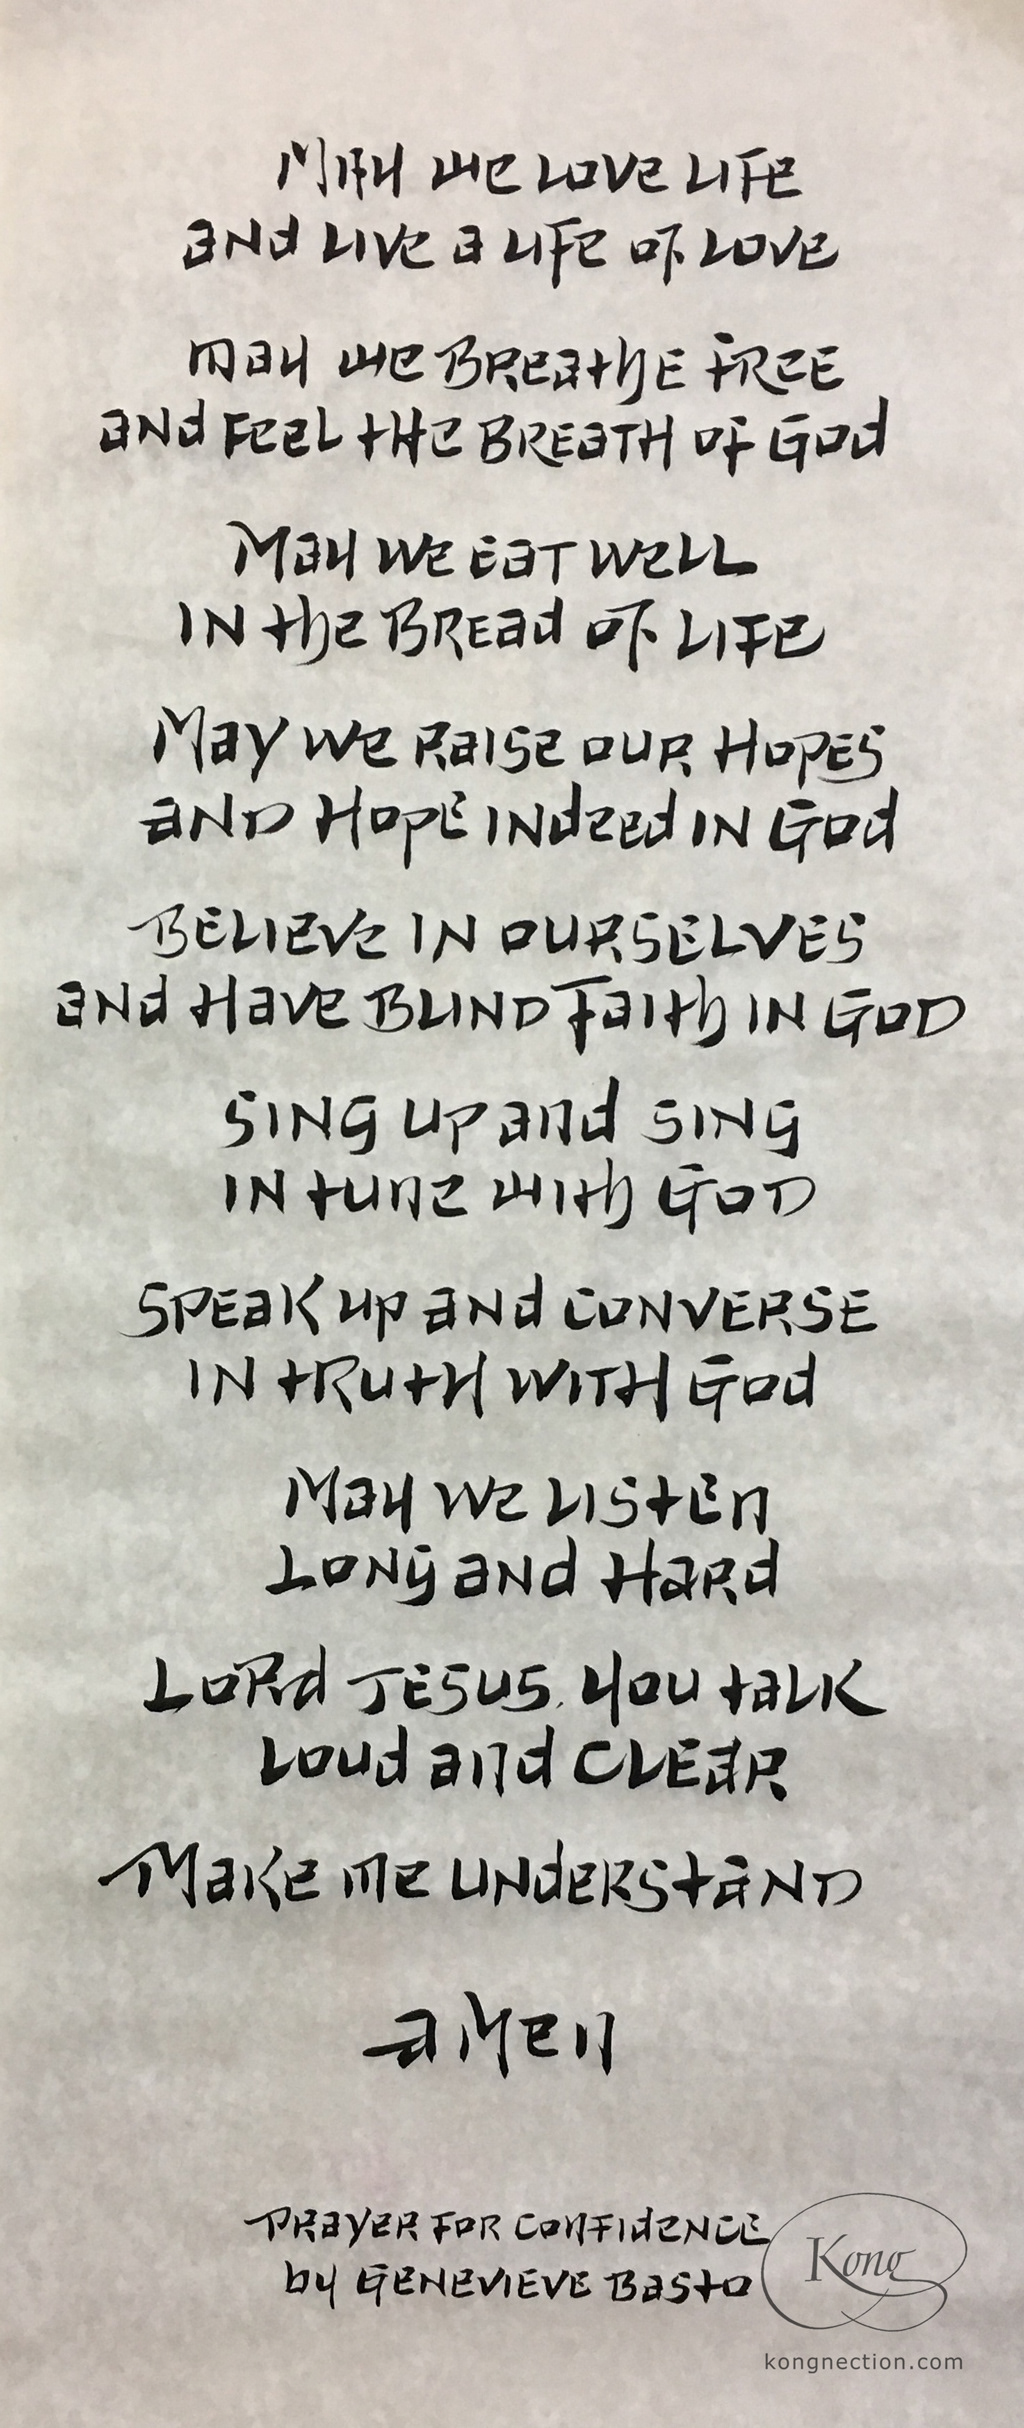 May we love life
and live a life of love
may we Breathe free
and feel the Breath of God
May we eat well
in the Bread of life
May we raise our Hopes
and Hope indeed in God
Believe in ourselves
and Have Blind Faith in God
Sing up and sing
in tune with God
Speak up and converse
in truth with God
May we listen
Long and Hard
Lord Jesus, you talk
Loud and Clear
Make me understand
amen
Prayer for confidence
by Genevieve Basto
Kong
kongnection.com